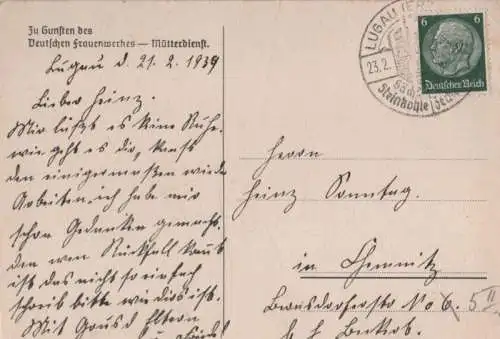 Zu Gunsten des
Deutschen Frauenwerkes — Mütterdienst.
Lugau d. 21. 2. 1939
Lieber Heinz.
Mir läßt es keine Ruhe,
wie geht es dir, kannst
den einigermaßen wieder
Arbeiten. ich habe mir
schon Gedanken gemacht.
den wen Rückfall
ist das nicht so einfach
schreib bitte wie dies ist.
Mit Eltern
LUGAU (ER
23.2.
Steinkohle
6 6
Deutsches Reich
Herrn
Heinz Sonntag.
in Chemnitz
Bernsdorferstr No 6. 5 II
b/